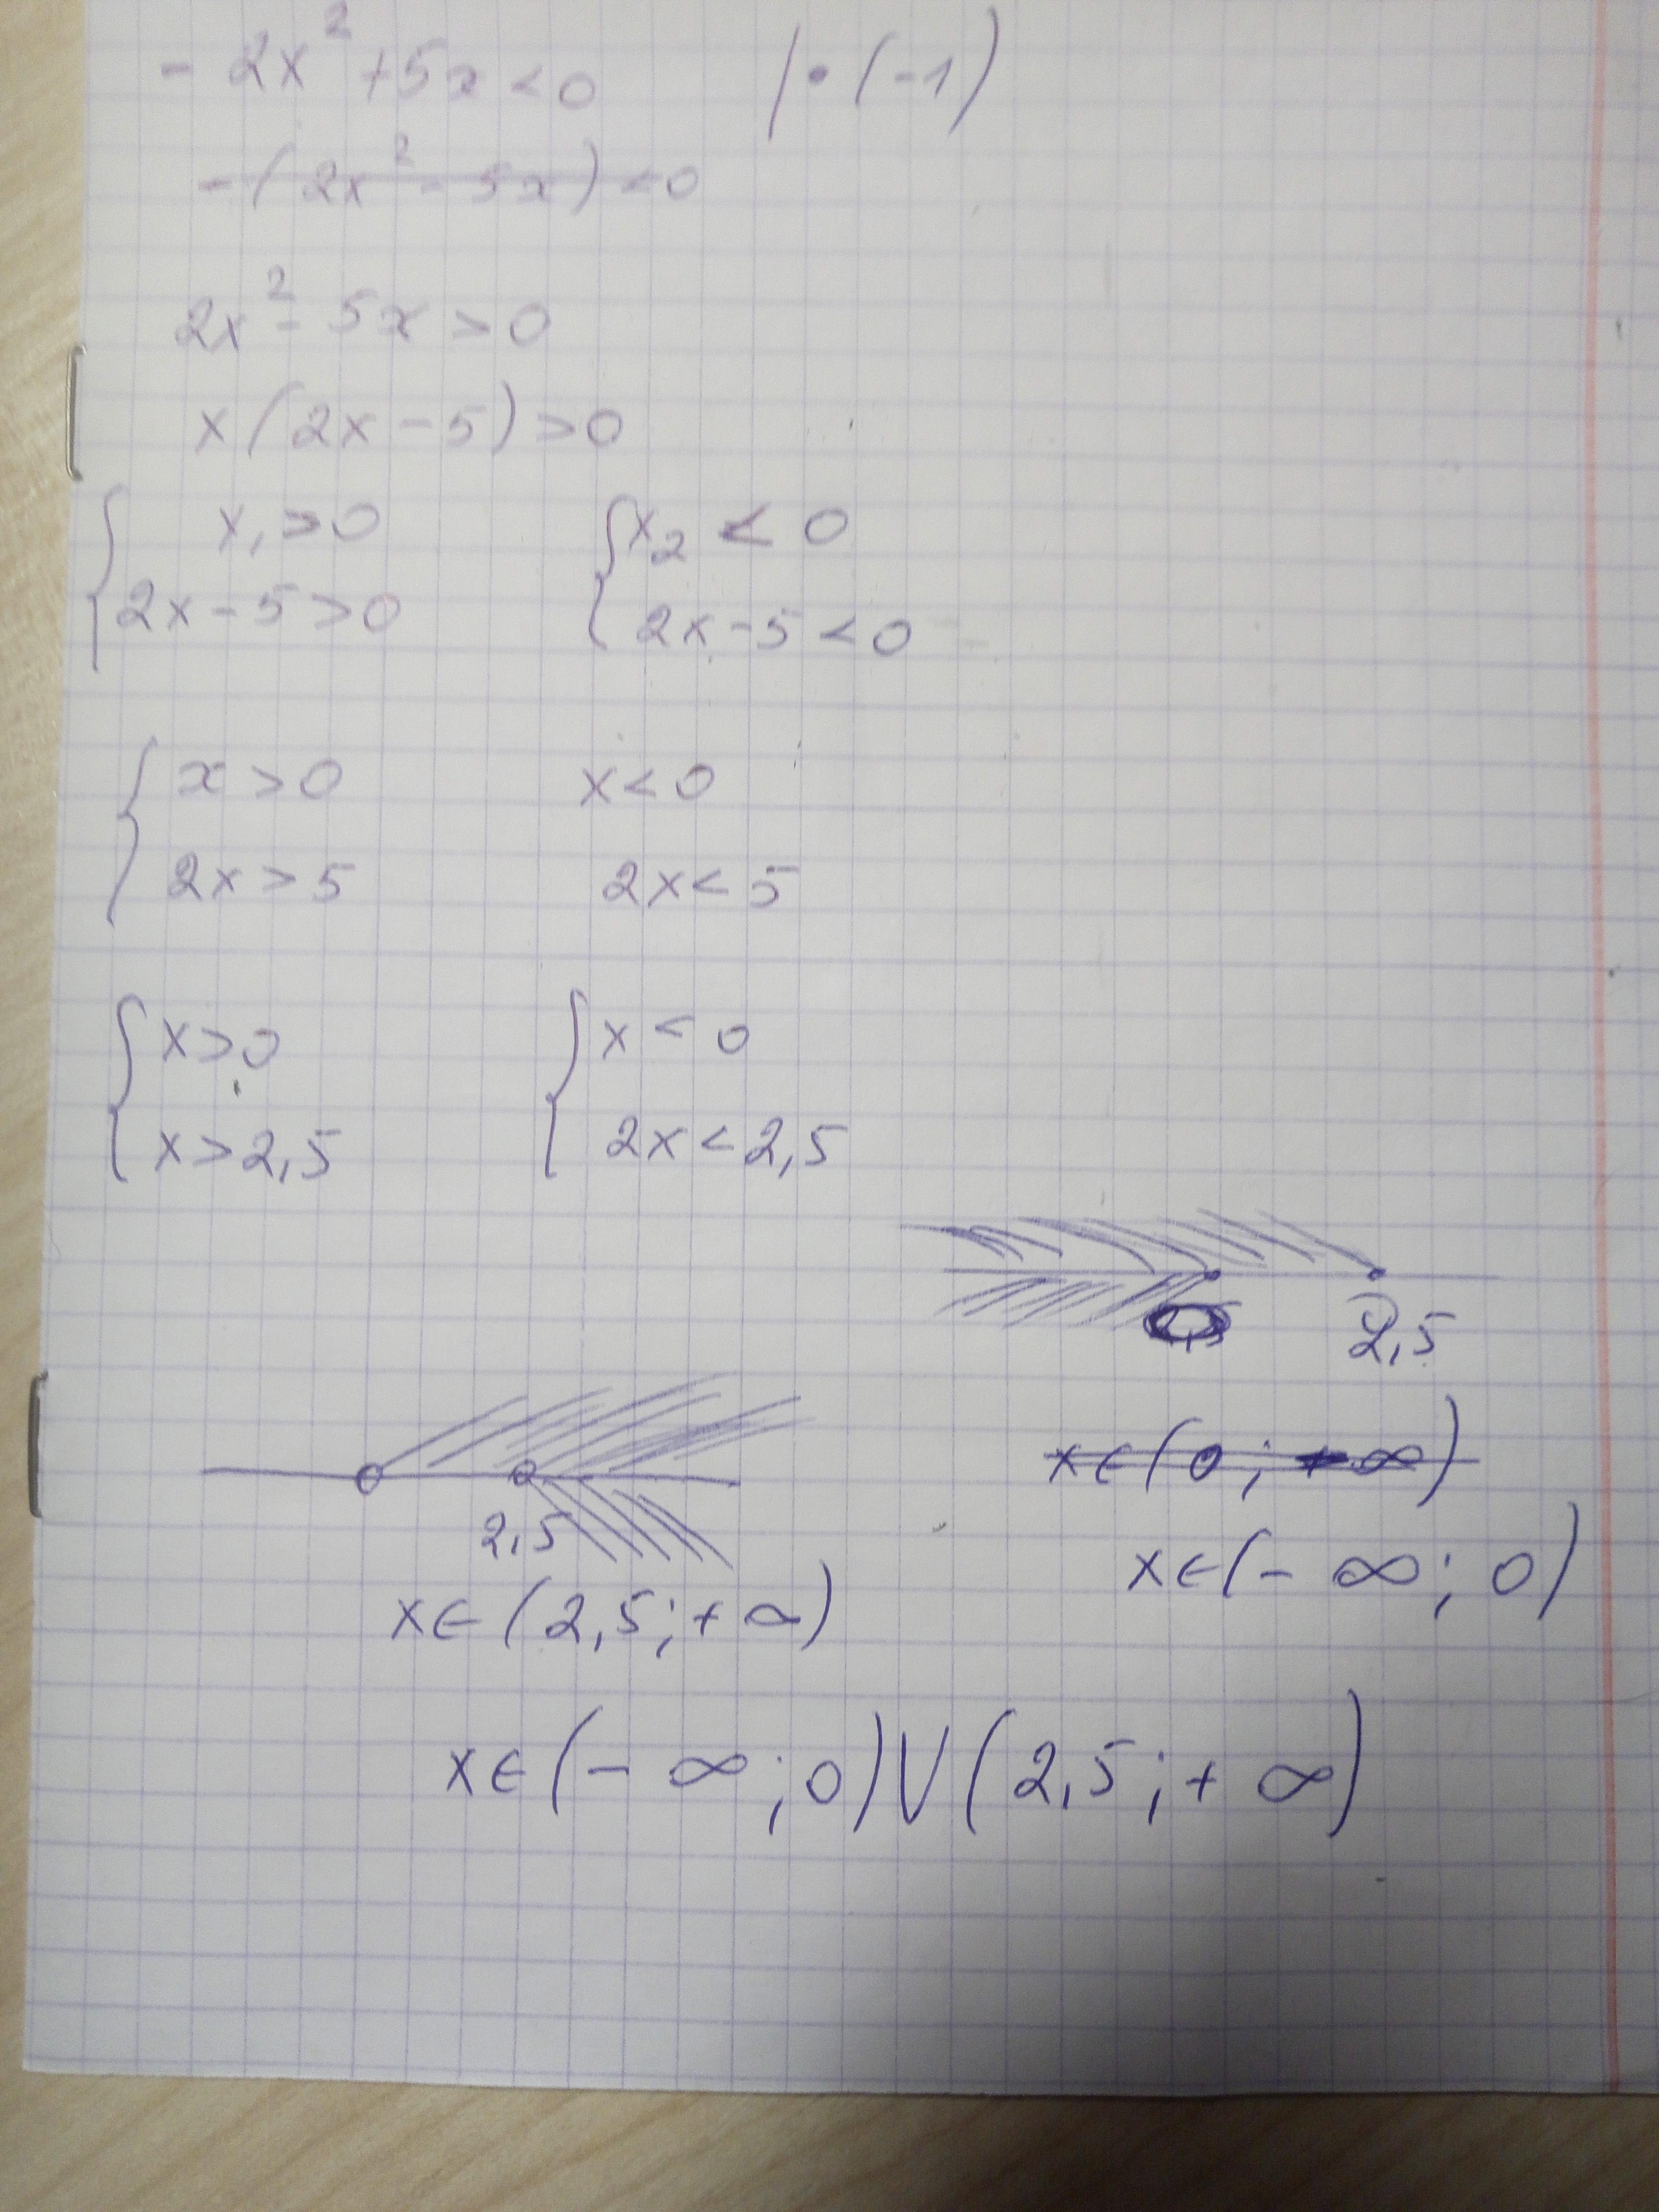 - 2x² + 5x < 0 | · (-1)
- (2x² - 5x) < 0
2x² - 5x > 0
x (2x - 5) > 0
{ x₁ > 0 { x₂ < 0
2x - 5 > 0 2x - 5 < 0
{ x > 0 x < 0
2x > 5 2x < 5
{ x > 0 { x < 0
x > 2,5 2x < 2,5
0 2,5
2,5
x ∈ (0 ; + ∞)
x ∈ (- ∞ ; 0)
x ∈ (2,5 ; + ∞)
x ∈ (- ∞ ; 0) V (2,5 ; + ∞)